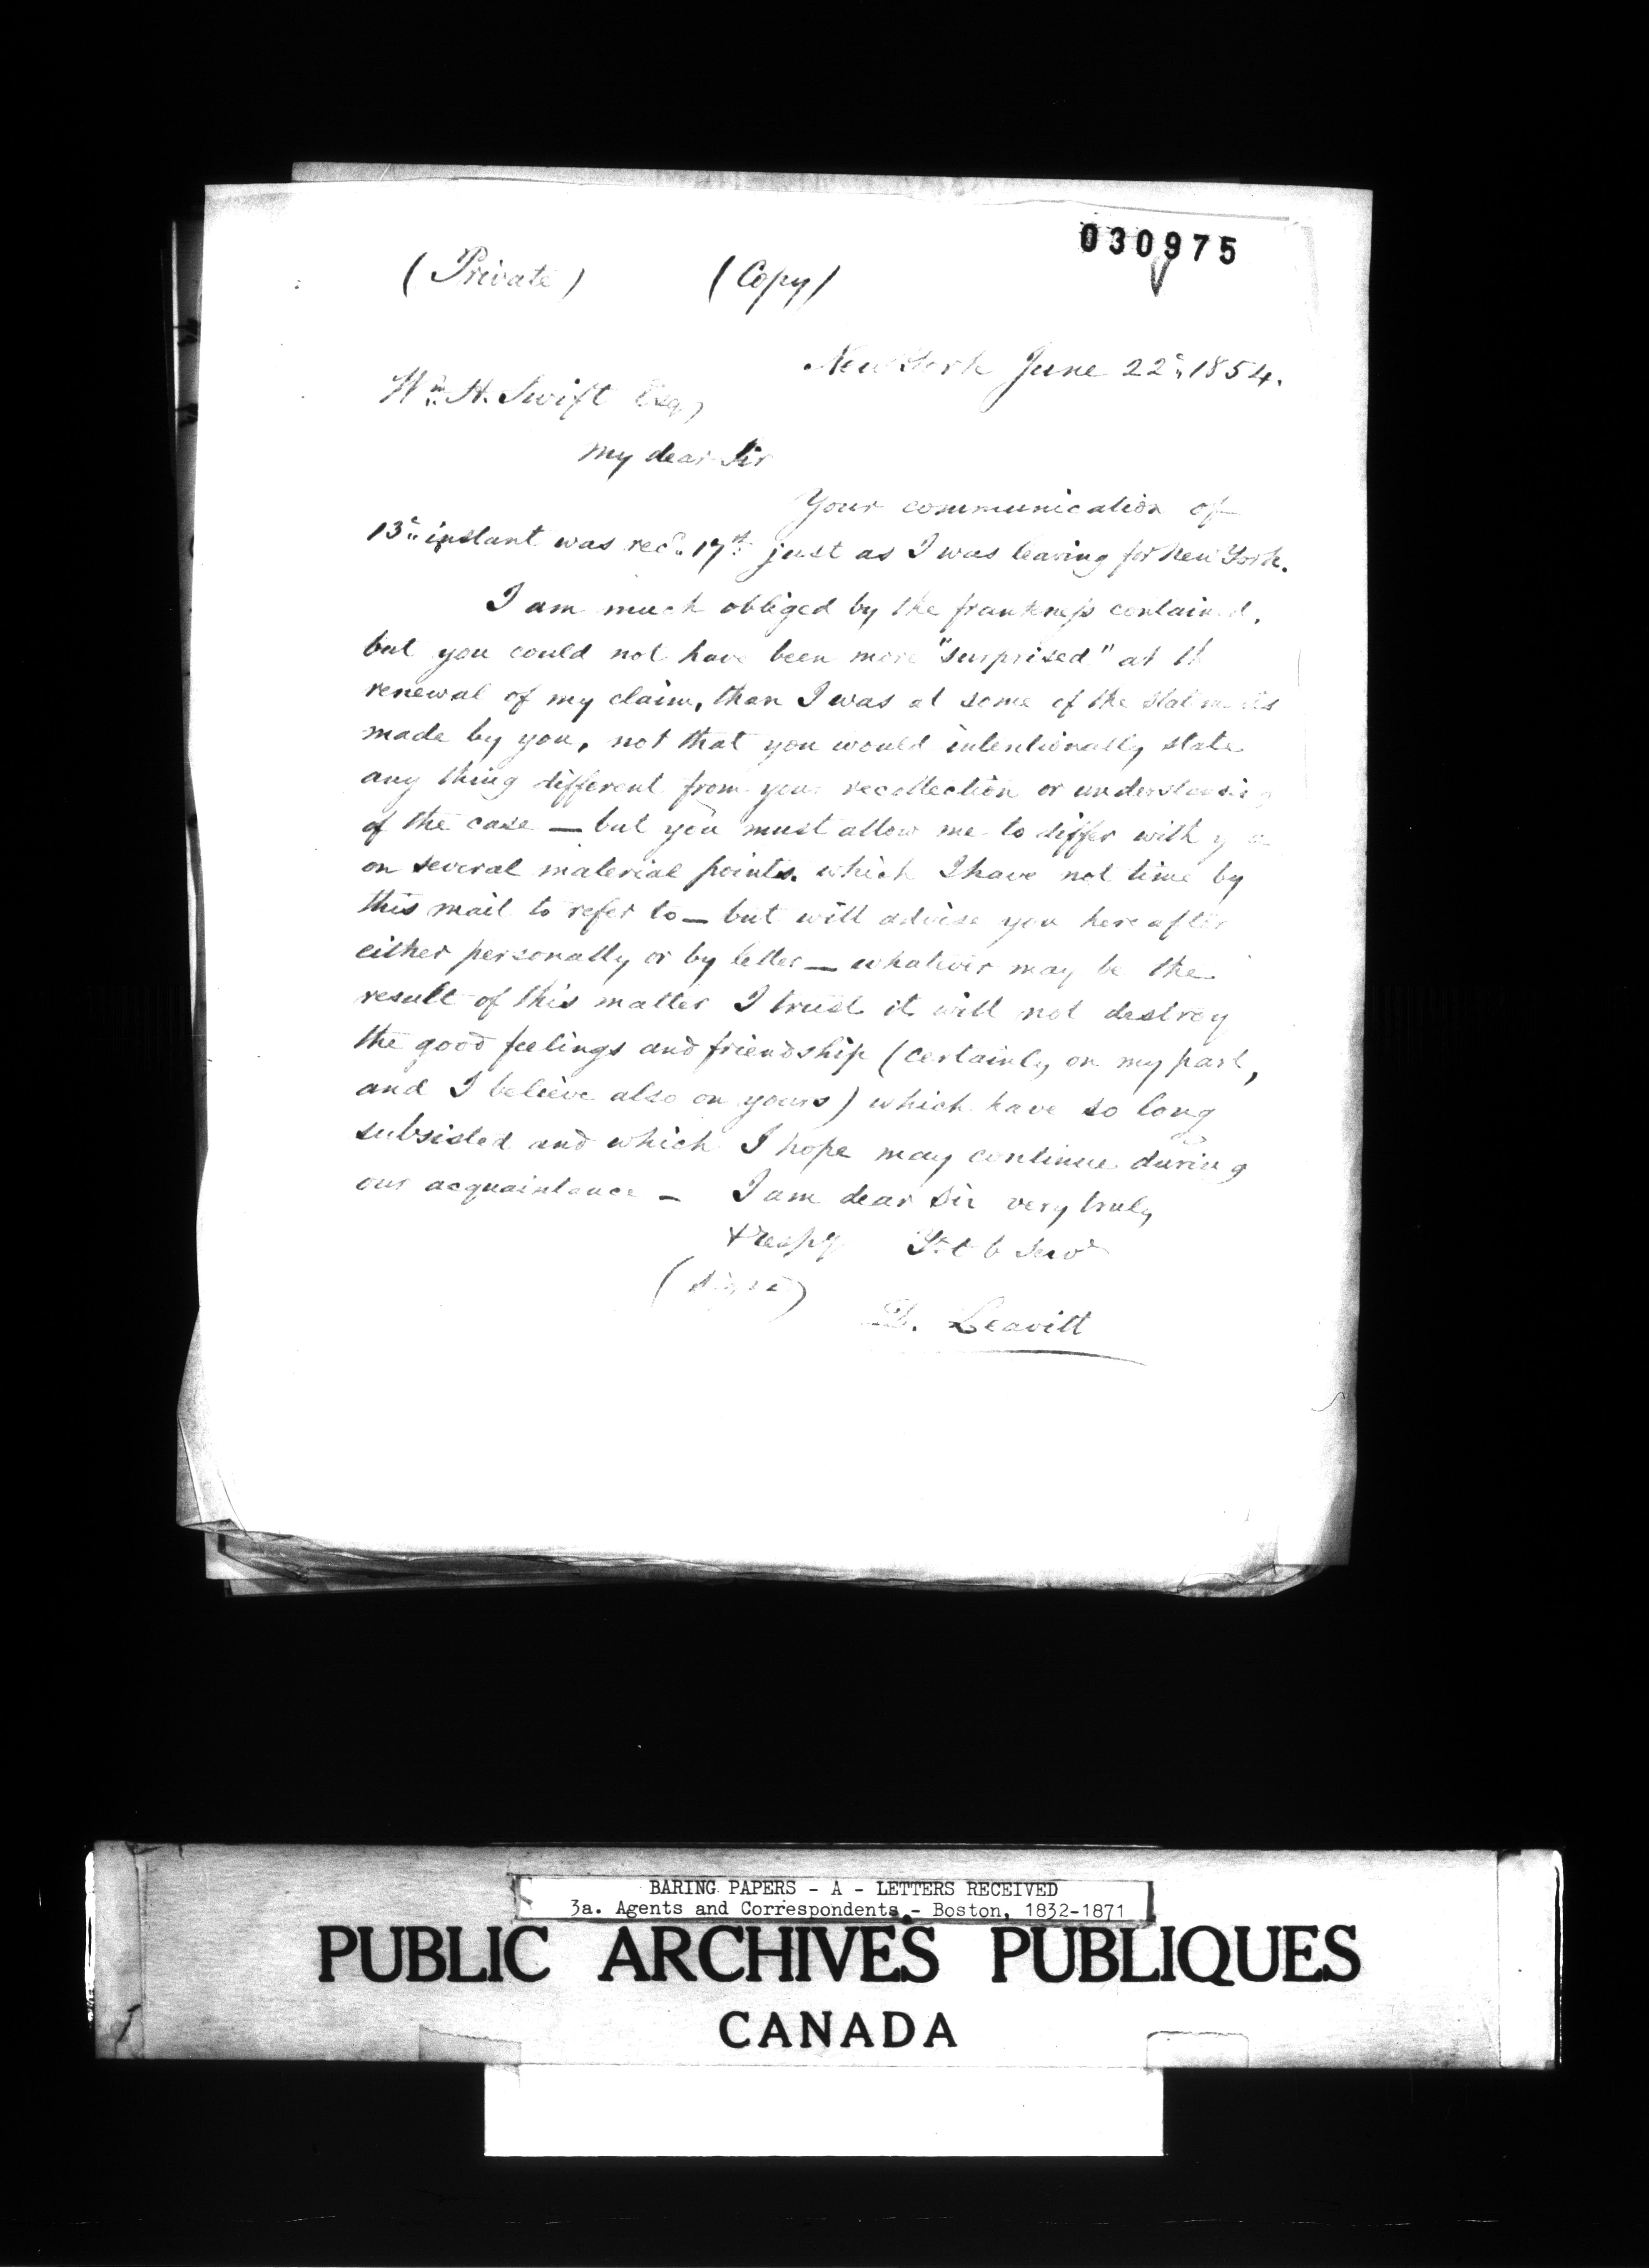 030975
(Private) (Copy)
New York June 22d. 1854.
Wm. H. Swift Esq,
My dear Sir
Your communication of
13th instant was recd. 17th. just as I was leaving for New York.
I am much obliged by the frankness contained,
but you could not have been more "surprised" at th
renewal of my claim, than I was at some of the statements
made by you, not that you would intentionally state
any thing different from your recollection or understanding
of the case — but you must allow me to differ with you
on several material points. which I have not time by
this mail to refer to — but will advise you hereafter
either personally or by letter — whatever may be the
result of this matter I trust it will not destroy
the good feelings and friendship (certainly on my part,
and I believe also on yours) which have so long
subsisted and which I hope may continue during
our acquaintance — I am dear Sir very truly
& respy Yr Ob Servt
(signed)
D. Leavitt
BARING PAPERS - A - LETTERS RECEIVED
3a. Agents and Correspondents - Boston, 1832-1871
PUBLIC ARCHIVES PUBLIQUES
CANADA